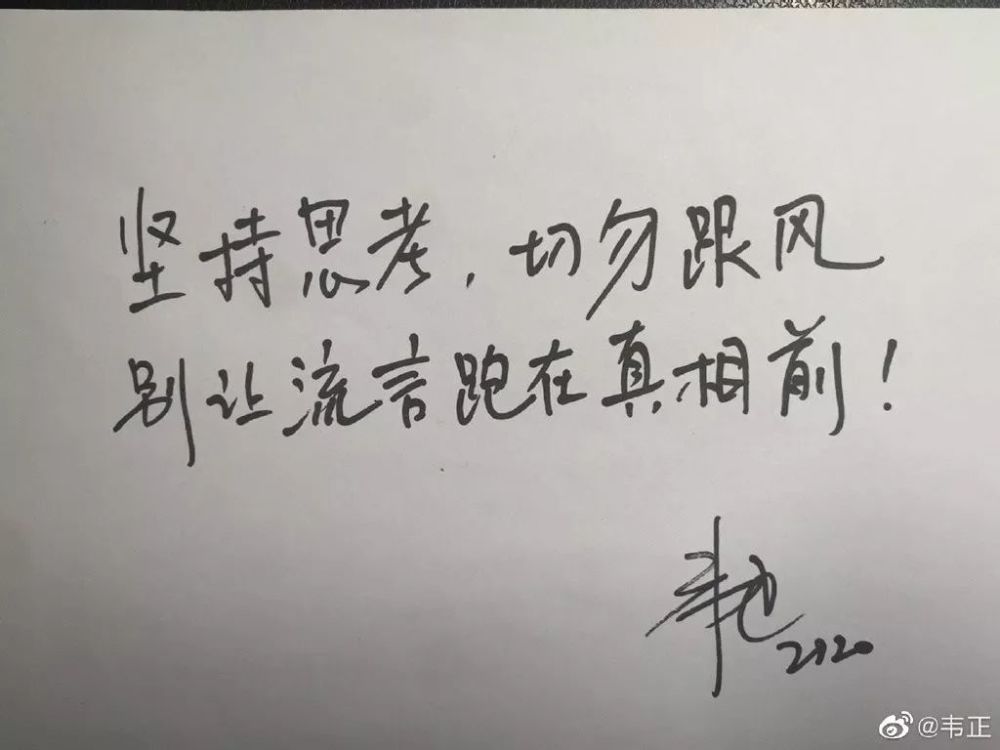 坚持思考，切勿跟风
别让流言跑在真相前！
韦正
2020
@韦正